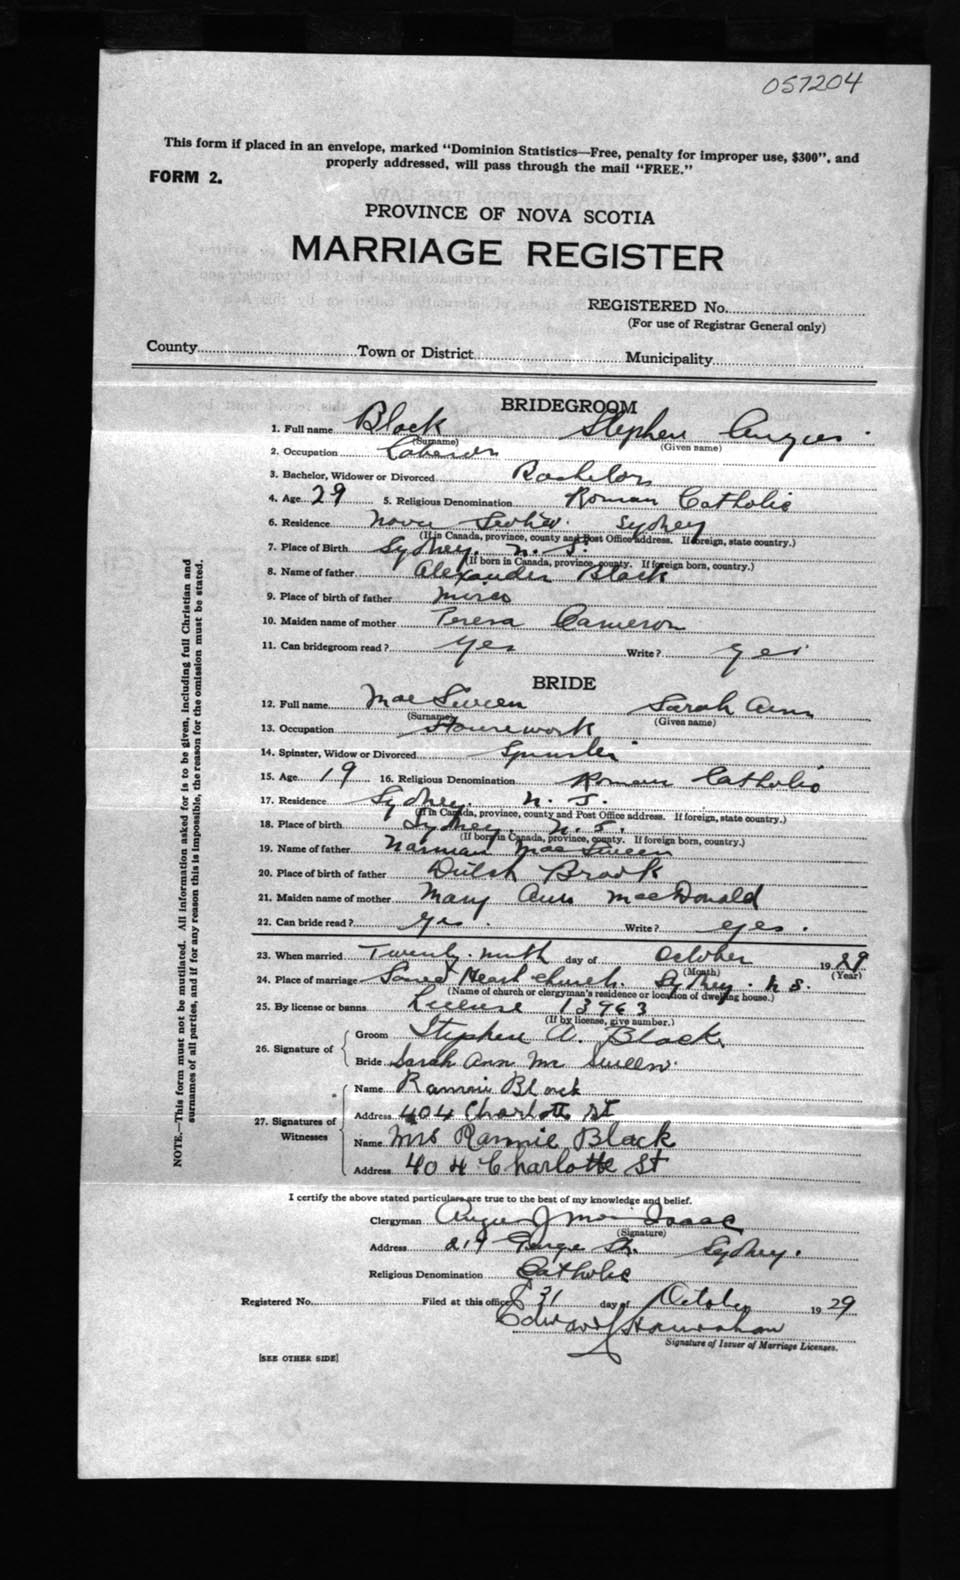 057204
This form if placed in an envelope, marked "Dominion Statistics—Free, penalty for improper use, $300", and
properly addressed, will pass through the mail "FREE."
FORM 2.
PROVINCE OF NOVA SCOTIA
MARRIAGE REGISTER
REGISTERED No.
(For use of Registrar General only)
County Town or District Municipality
BRIDEGROOM
1. Full name Black Stephen Angus
(Surname) (Given name)
2. Occupation Laborer
3. Bachelor, Widower or Divorced Bachelor
4. Age 29 5. Religious Denomination Roman Catholic
6. Residence Nova Scotia. Sydney
(If in Canada, province, county and Post Office address. If foreign, state country.)
7. Place of Birth Sydney. N. S.
(If born in Canada, province, county. If foreign born, country.)
8. Name of father Alexander Black
9. Place of birth of father
10. Maiden name of mother Teresa Cameron
11. Can bridegroom read? Yes Write? yes
BRIDE
12. Full name Mac Sween Sarah Ann
(Surname) (Given name)
13. Occupation Housework
14. Spinster, Widow or Divorced Spinster
15. Age 19 16. Religious Denomination Roman Catholic
17. Residence Sydney. N. S.
(If in Canada, province, county and Post Office address. If foreign, state country.)
18. Place of birth Sydney. N. S.
(If born in Canada, province, county. If foreign born, country.)
19. Name of father Norman Mac Sween
20. Place of birth of father Dutch Brook
21. Maiden name of mother Mary Ann MacDonald
22. Can bride read? Yes. Write? yes.
23. When married Twenty-ninth day of October 1929
(Month) (Year)
24. Place of marriage Sacred Heart church. Sydney. N S.
(Name of church or clergyman's residence or location of dwelling house.)
25. By license or banns License 13963
(If by license, give number.)
26. Signature of
Groom Stephen A. Black
Bride Sarah Ann Mc Sween
27. Signatures of Witnesses
Name Rannie Black
Address 404 Charlotte St
Name Mrs Rannie Black
Address 404 Charlotte St
I certify the above stated particulars are true to the best of my knowledge and belief.
Clergyman Angus J Mac Isaac
(Signature)
Address 219 George St. Sydney.
Religious Denomination Catholic
Registered No. Filed at this office 31 day of October 1929
Edward
Signature of Issuer of Marriage Licenses.
[SEE OTHER SIDE]
NOTE.—This form must not be mutilated. All information asked for is to be given, including full Christian and
surnames of all parties, and if for any reason this is impossible, the reason for the omission must be stated.